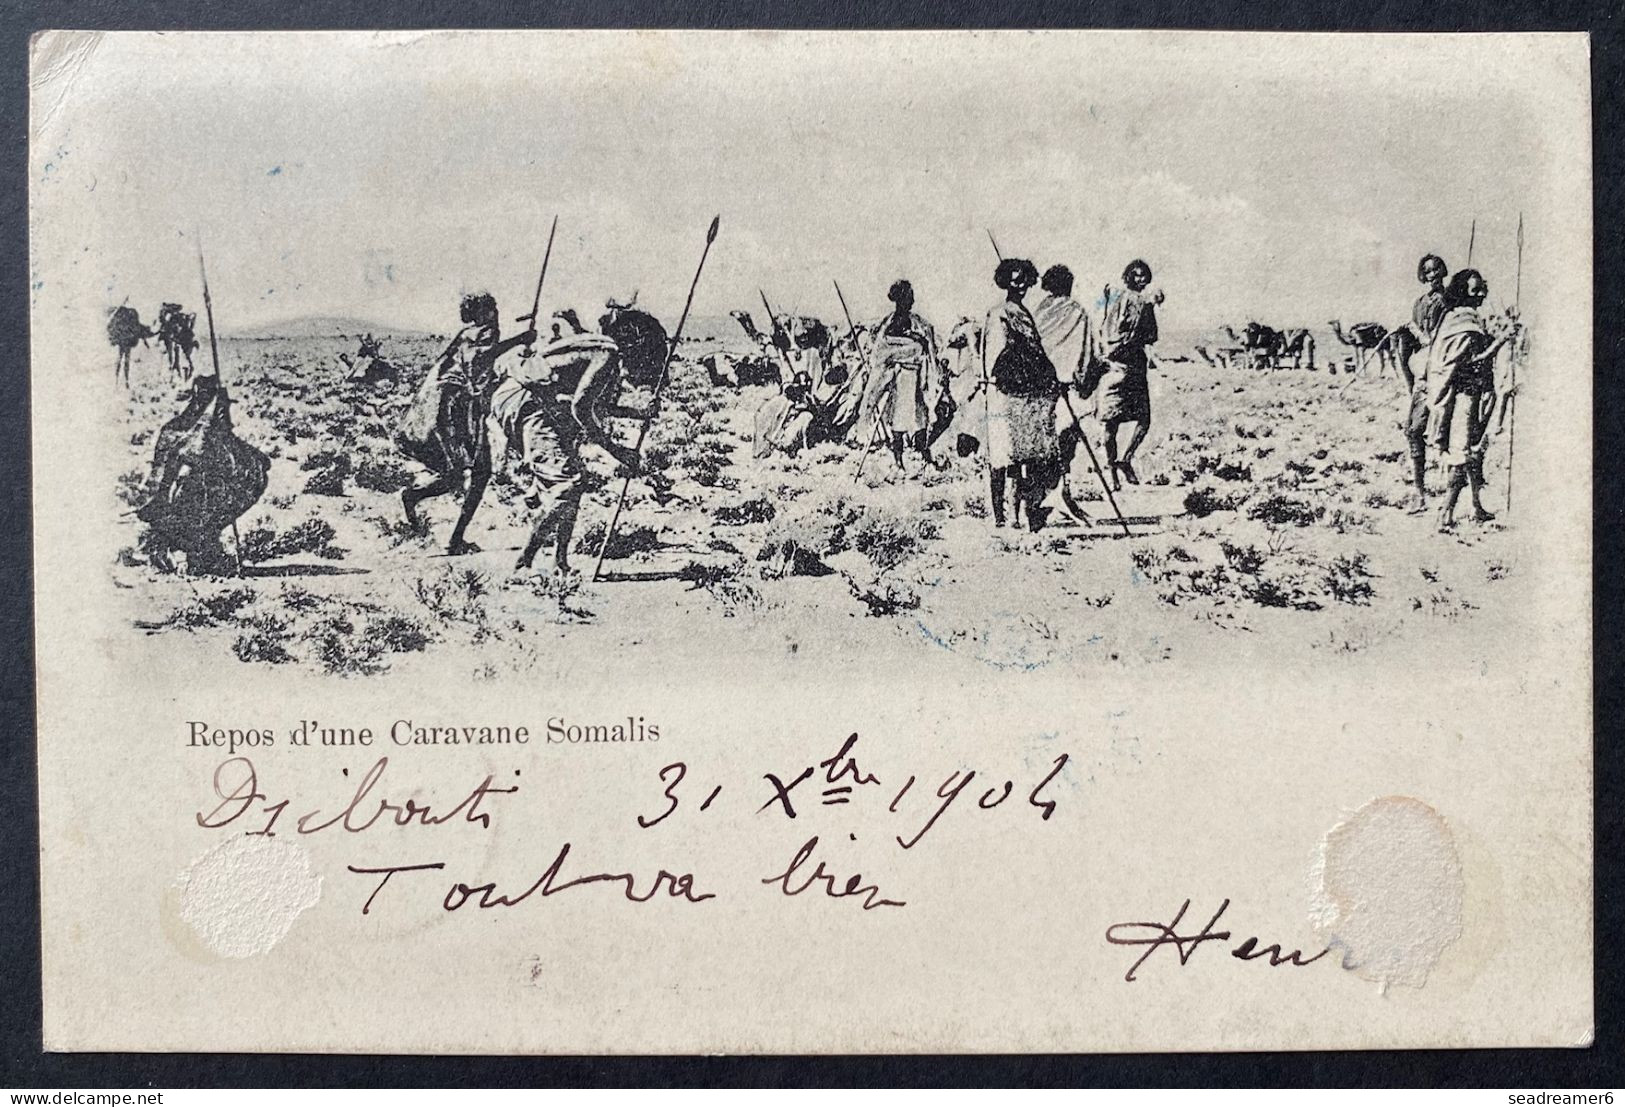 Repos d'une Caravane Somalis
Djibouti 31 Xbre 1904
Tout va bien
Henri
delcampe.net
seadreamer6